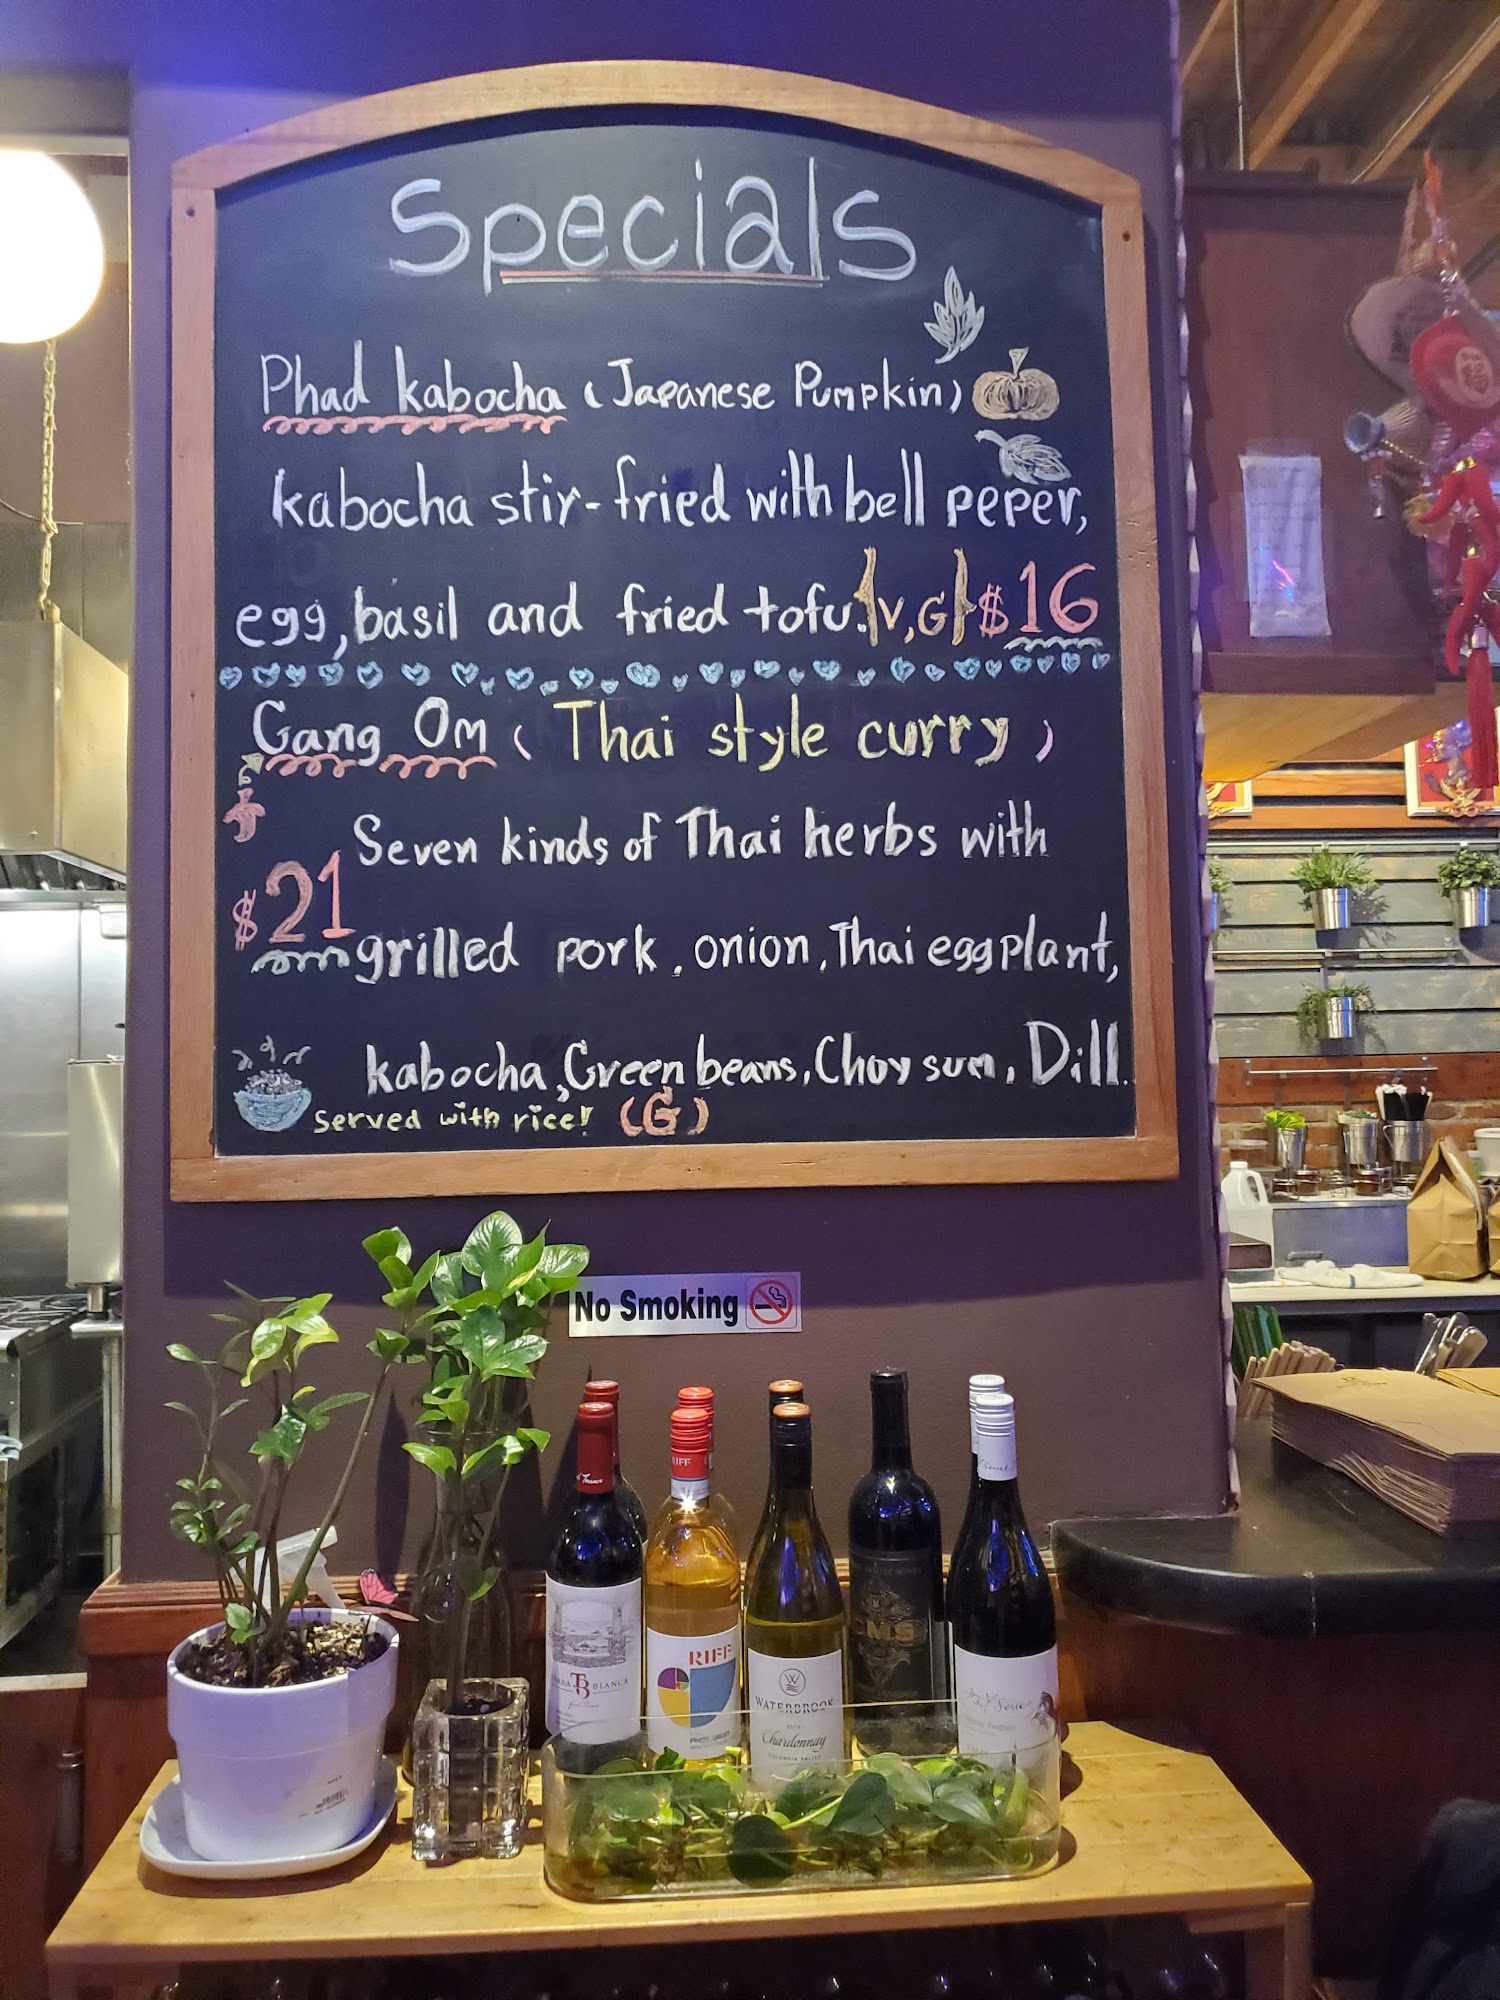 Specials
Phad kabocha (Japanese Pumpkin)
kabocha stir-fried with bell peper,
egg, basil and fried tofu. {V,G} $16
Gang Om (Thai style curry)
Seven kinds of Thai herbs with
$21
grilled pork, onion, Thai eggplant,
kabocha, Green beans, Choy sum, Dill.
Served with rice! (G)
No Smoking
RIFF
RIFF
PINOT GRIGIO
TB
BLANCA
W
WATERBROOK
Chardonnay
COLUMBIA VALLEY